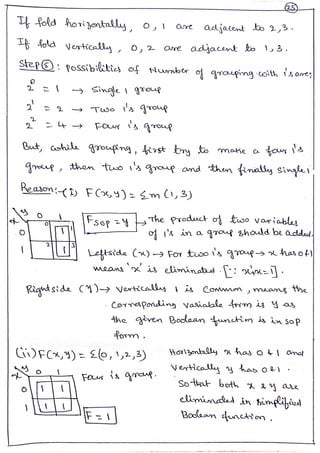 25
If fold horizontally, 0, 1 are adjacent to 2, 3.
If fold vertically, 0, 2 are adjacent to 1, 3.
Step ⑤: possibilities of Number of grouping with 1's are;
2⁰ = 1 → Single 1 group
2¹ = 2 → Two 1's group
2² = 4 → Four 1's group
But, while grouping, first try to make a four 1's
group, then two 1's group and then finally single 1
Reason:- (i) F(x,y) = Σm(1,3)
x y 0 1
0 0 1 1
1 2 3 1
F SOP = y → The product of two variables
of 1's in a group should be added.
Leftside (x) → For two 1's group → x has 0 & 1
means 'x' is eliminated. [∵ x'x=1].
Right side (y) → vertically 1 is common, means the
corresponding variable term is y as
the given Boolean function is in SOP
form.
(ii) F(x,y) = Σ(0,1,2,3)
x y 0 1
0 1 1
1 1 1
Four 1's group.
F = 1
Horizontally x has 0 & 1 and
vertically y has 0 & 1.
So that both x & y are
eliminated in simplified
Boolean function.